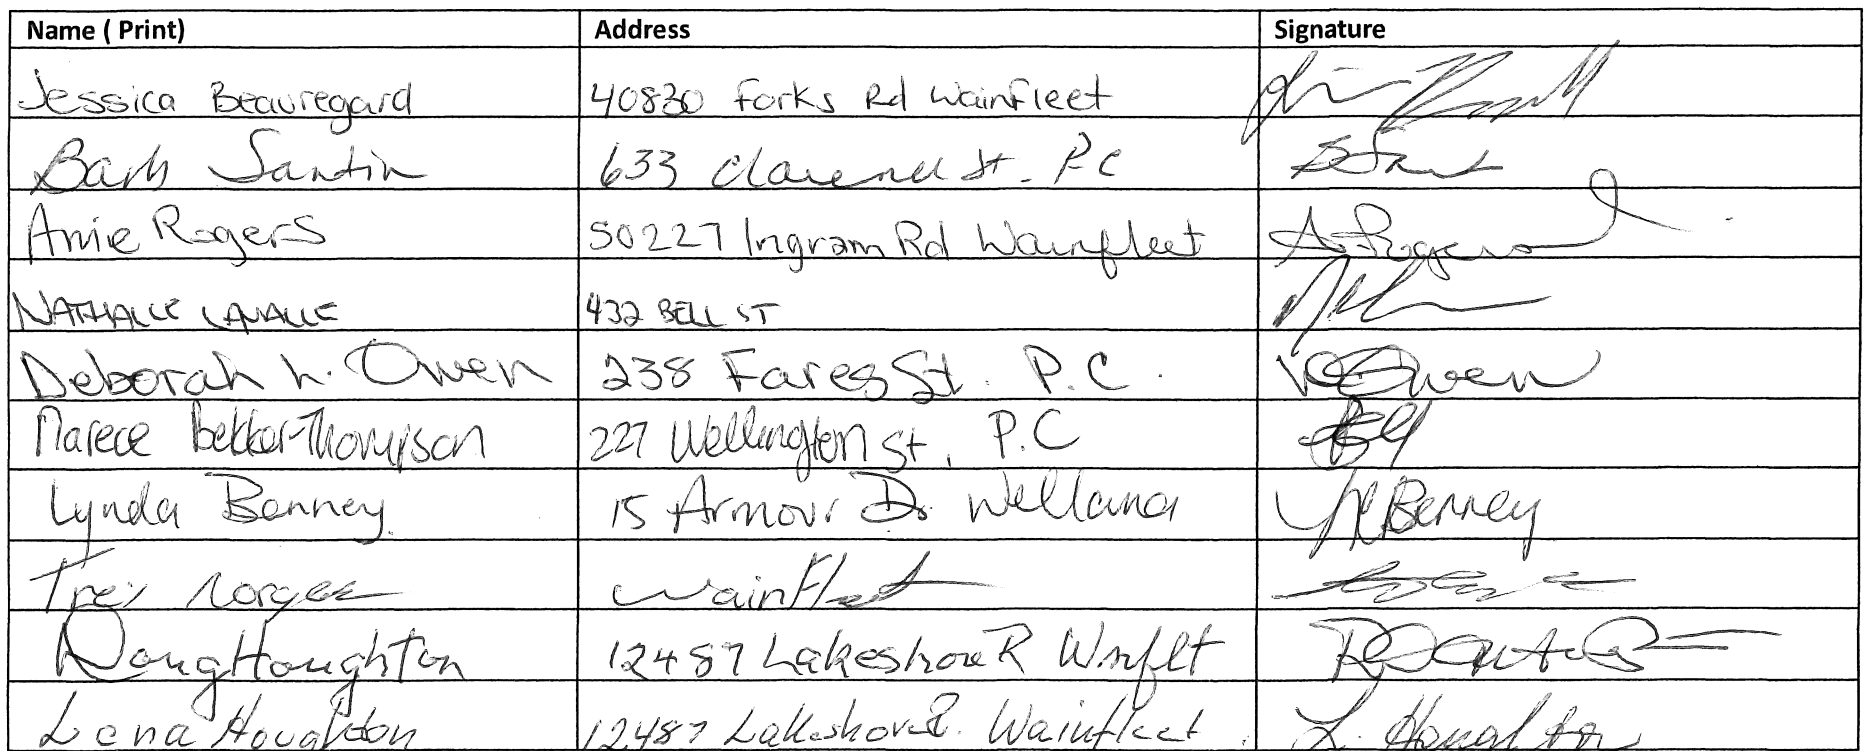 Name ( Print) Address Signature
Jessica Beauregard 40830 Forks Rd Wainfleet
Barb Santin 633 Clarence St. P.C
Amie Rogers 50227 Ingram Rd Wainfleet A Rogers
NATHALIE LAVALLE 432 BELL ST
Deborah L. Owen 238 Fares St. P.C. D Owen
Marece Bekker-Thompson 227 Wellington St, P.C
Lynda Benney 15 Armour Dr Welland L Benney
Wainfleet
Doug Houghton 12487 Lakeshore R Wnflt
Lena Houghton 12487 Lakeshore R. Wainfleet L. Houghton